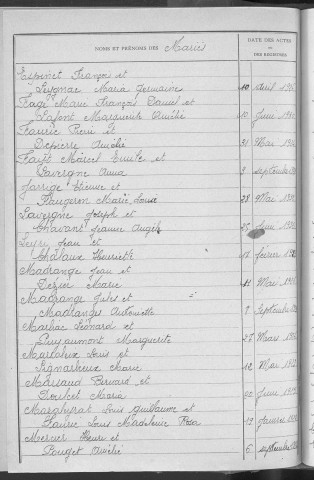 NOMS ET PRÉNOMS DES Mariés
DATE DES ACTES
ou
DES REGISTRES
Espinet François et
Leygnac Maria Germaine 10 Avril 19
Fage Marie François Daniel et
Lafont Marguerite 10 Juin 19
Faurie Pierre et
Depierre Amélie 21 Mai 19
Faust Marcel Emile et
Lavergne Anna 3 septembre
Jarrige Etienne et
Faugeron Marie Louise 28 Mai 19
Lavergne Joseph et
Chavant Jeanne Angèle 25 Juin 19
Leyre Jean et
Chalaux Henriette 12 février 19
Madrange Jean et
Marie 11 Mai 19
Madrange Jules et
Madranges Antoinette 1 Septembre
Marliac Léonard et
Puyaumont Marguerite 25 Mars 19
Louis et
Marie 12 Mai 19
Massaud Bernard et
Doulcet Maria 22 Juin 19
Margueyrat Louis Guillaume et
Faurie Louise Madeleine Rosa 17 Janvier 19
Mercier Henri et
Pouget Amélie 6 septembre